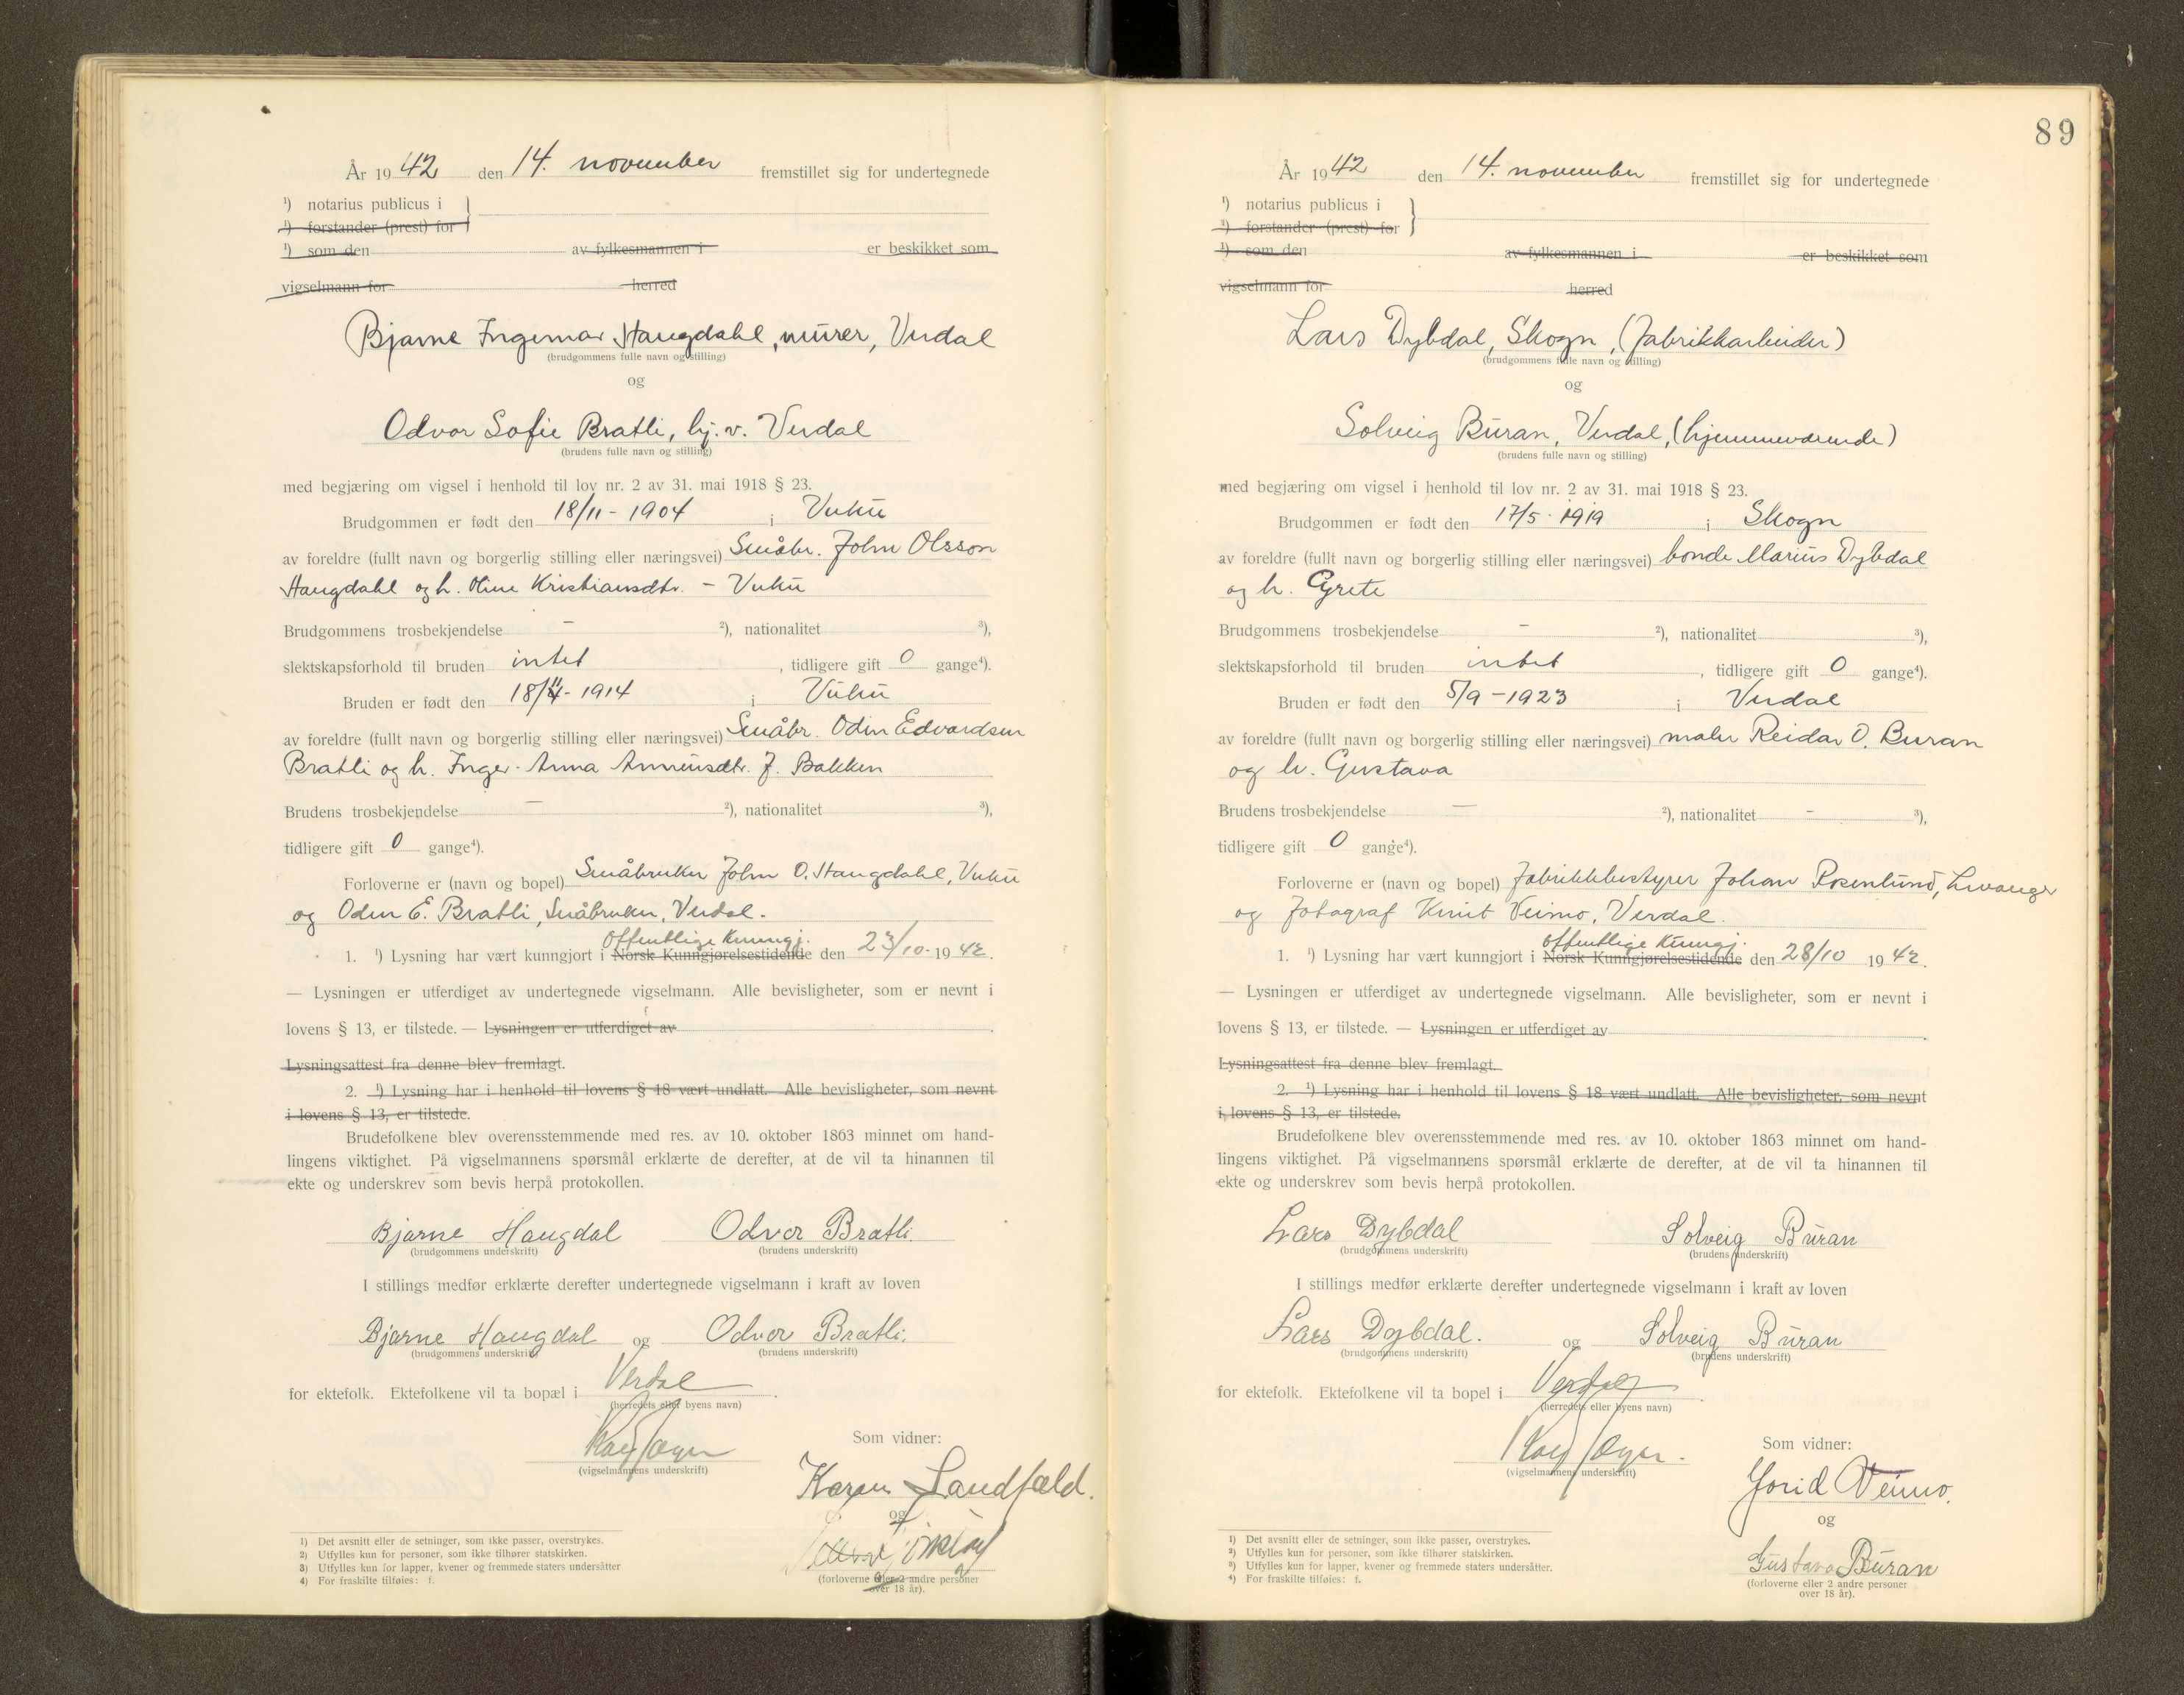 År 1942 den 14. november fremstillet sig for undertegnede
¹) notarius publicus i
¹) forstander (prest) for
¹) som den av fylkesmannen i er beskikket som
vigselmann for herred
Bjarne Ingemar Haugdahl, murer, Verdal
(brudgommens fulle navn og stilling)
og
Odvor Sofie Bratli, hj.v. Verdal
(brudens fulle navn og stilling)
med begjæring om vigsel i henhold til lov nr. 2 av 31. mai 1918 § 23.
Brudgommen er født den 18/11 - 1904 i Vuku
av foreldre (fullt navn og borgerlig stilling eller næringsvei) Småbr. John Olsson
Haugdahl og h. Oline Kristiansdtr. - Vuku
Brudgommens trosbekjendelse - ²), nationalitet ³),
slektskapsforhold til bruden intet , tidligere gift 0 gange⁴).
Bruden er født den 18/11 - 1914 i Vuku
av foreldre (fullt navn og borgerlig stilling eller næringsvei) Småbr. Odin Edvardsen
Bratli og h. Inger Anna f. Bakken
Brudens trosbekjendelse - ²), nationalitet ³),
tidligere gift 0 gange⁴).
Forloverne er (navn og bopel) Småbruker John O. Haugdahl, Vuku
og Odin E. Bratli, Småbruker, Verdal.
offentlige kunngj.
1. ¹) Lysning har vært kunngjort i Norsk Kunngjørelsestidende den 23/10-1942.
— Lysningen er utferdiget av undertegnede vigselmann. Alle bevisligheter, som er nevnt i
lovens § 13, er tilstede. — Lysningen er utferdiget av .
Lysningsattest fra denne blev fremlagt.
2. ¹) Lysning har i henhold til lovens § 18 vært undlatt. Alle bevisligheter, som nevnt
i lovens § 13, er tilstede.
Brudefolkene blev overensstemmende med res. av 10. oktober 1863 minnet om hand-
lingens viktighet. På vigselmannens spørsmål erklærte de derefter, at de vil ta hinannen til
ekte og underskrev som bevis herpå protokollen.
Bjarne Haugdal Odvor Bratli.
(brudgommens underskrift) (brudens underskrift)
I stillings medfør erklærte derefter undertegnede vigselmann i kraft av loven
Bjarne Haugdal og Odvor Bratli.
(brudgommens underskrift) (brudens underskrift)
for ektefolk. Ektefolkene vil ta bopæl i Verdal .
(herredets eller byens navn)
Som vidner:
(vigselmannens underskrift)
Karen Landfald.
og
(forloverne eller 2 andre personer
over 18 år).
1) Det avsnitt eller de setninger, som ikke passer, overstrykes.
2) Utfylles kun for personer, som ikke tilhører statskirken.
3) Utfylles kun for lapper, kvener og fremmede staters undersåtter
4) For fraskilte tilføies: f.
89
År 1942 den 14. november fremstillet sig for undertegnede
¹) notarius publicus i
¹) forstander (prest) for
¹) som den av fylkesmannen i er beskikket som
vigselmann for herred
Lars Dybdal, Skogn, (fabrikkarbeider)
(brudgommens fulle navn og stilling)
og
Solveig Buran, Verdal, (hjemmeværende)
(brudens fulle navn og stilling)
med begjæring om vigsel i henhold til lov nr. 2 av 31. mai 1918 § 23.
Brudgommen er født den 17/5 - 1919 i Skogn
av foreldre (fullt navn og borgerlig stilling eller næringsvei) bonde Marius Dybdal
og h. Grete
Brudgommens trosbekjendelse - ²), nationalitet ³),
slektskapsforhold til bruden intet , tidligere gift 0 gange⁴).
Bruden er født den 5/9 - 1923 i Verdal
av foreldre (fullt navn og borgerlig stilling eller næringsvei) maler Reidar O. Buran
og h. Gustava
Brudens trosbekjendelse — ²), nationalitet - ³),
tidligere gift 0 gange⁴).
Forloverne er (navn og bopel) Fabrikkbestyrer Johan Rosenlund, Levanger
og Fotograf Knut Veimo, Verdal.
offentlige kunngj.
1. ¹) Lysning har vært kunngjort i Norsk Kunngjørelsestidende den 28/10 1942.
— Lysningen er utferdiget av undertegnede vigselmann. Alle bevisligheter, som er nevnt i
lovens § 13, er tilstede. — Lysningen er utferdiget av .
Lysningsattest fra denne blev fremlagt.
2. ¹) Lysning har i henhold til lovens § 18 vært undlatt. Alle bevisligheter, som nevnt
i lovens § 13, er tilstede.
Brudefolkene blev overensstemmende med res. av 10. oktober 1863 minnet om hand-
lingens viktighet. På vigselmannens spørsmål erklærte de derefter, at de vil ta hinannen til
ekte og underskrev som bevis herpå protokollen.
Lars Dybdal Solveig Buran
(brudgommens underskrift) (brudens underskrift)
I stillings medfør erklærte derefter undertegnede vigselmann i kraft av loven
Lars Dybdal. og Solveig Buran
(brudgommens underskrift) (brudens underskrift)
for ektefolk. Ektefolkene vil ta bopel i Verdal .
(herredets eller byens navn)
Som vidner:
(vigselmannens underskrift)
Jorid Veimo.
og
Gustava Buran
(forloverne eller 2 andre personer
over 18 år).
1) Det avsnitt eller de setninger, som ikke passer, overstrykes.
2) Utfylles kun for personer, som ikke tilhører statskirken.
3) Utfylles kun for lapper, kvener og fremmede staters undersåtter.
4) For fraskilte tilføies: f.